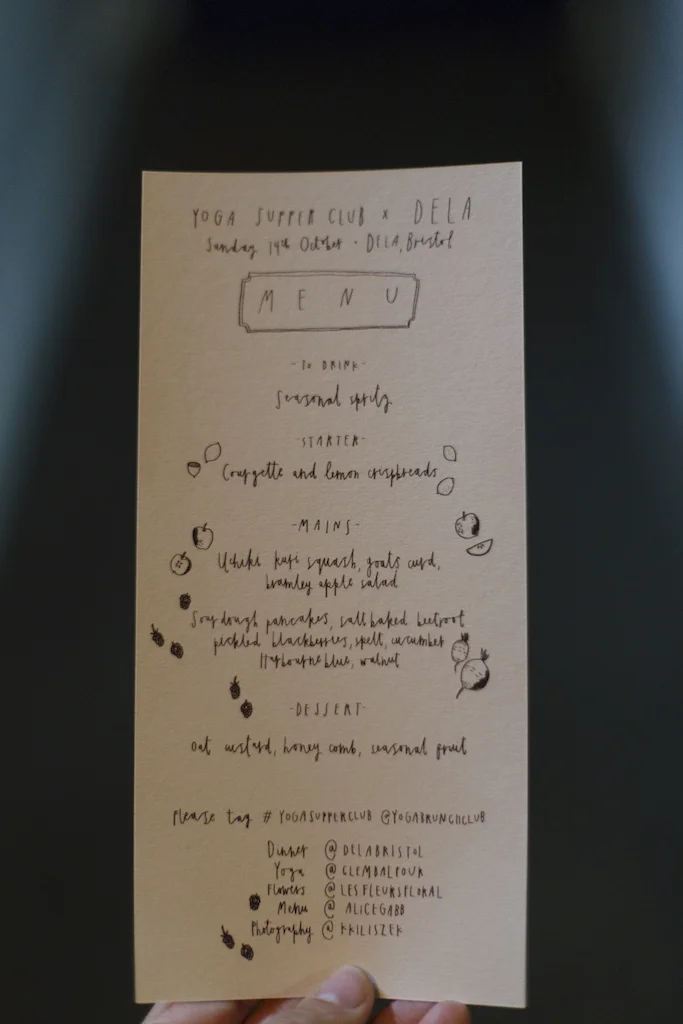 YOGA SUPPER CLUB x DELA
Sunday 14th October · DELA, Bristol
MENU
-TO DRINK-
Seasonal spritz
-STARTER-
Courgette and lemon crispbreads
-MAINS-
Uchiki kuri squash, goats curd,
bramley apple salad
Sourdough pancakes, salt baked beetroot
pickled blackberries, spelt, cucumber
Harbourne blue, walnut
-DESSERT-
oat custard, honey comb, seasonal fruit
Please tag # YOGASUPPERCLUB @YOGABRUNCHCLUB
Dinner @DELABRISTOL
Yoga @CLEMBALFOUR
Flowers @LESFLEURSFLORAL
Menu @ALICEGABB
Photography @KKILISZEK